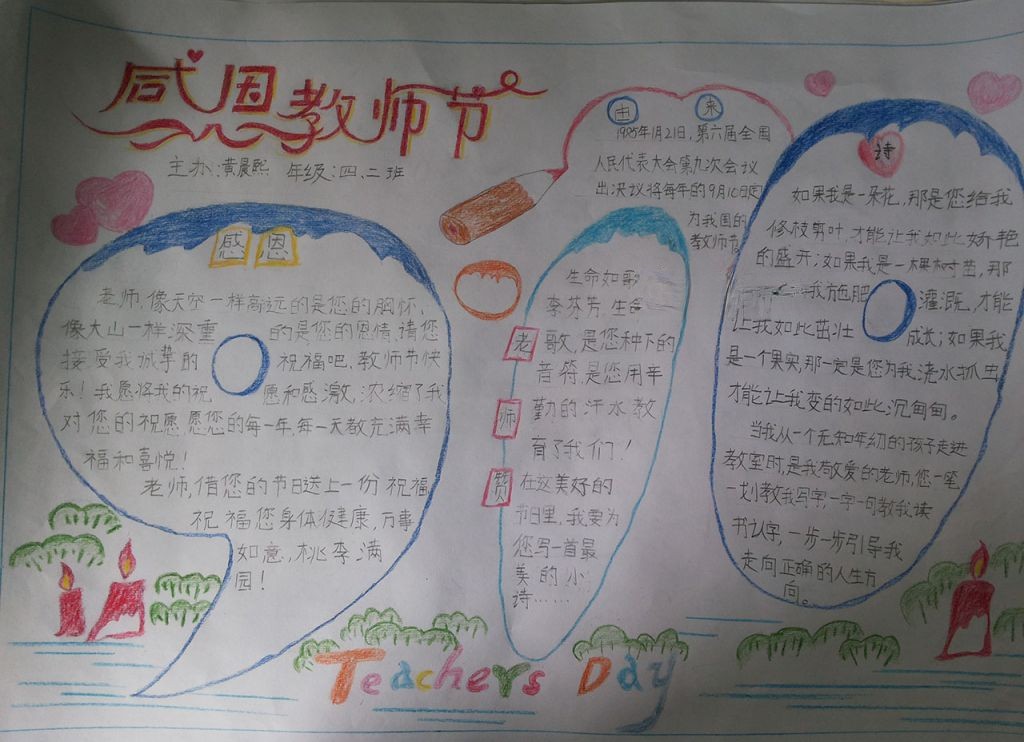 感恩教师节
主办:黄晨熙 年级:四、二班
感恩
老师,像天空一样高远的是您的胸怀,
像大山一样深重的是您的恩情,请您
接受我诚挚的祝福吧,教师节快
乐!我愿将我的祝愿和感激,浓缩了我
对您的祝愿,愿您的每一年,每一天教充满幸
福和喜悦!
老师,借您的节日送上一份祝福
祝福您身体健康,万事
如意,桃李满
园!
由来
1985年1月21日,第六届全国
人民代表大会第九次会议
出决议将每年的9月10日定
为我国的
教师节
老师赞
生命如歌
李芬芳,生命
歌,是您种下的
音符,是您用辛
勤的汗水教
育了我们!
在这美好的
节日里,我要为
您写一首最
美的小
诗……
诗
如果我是一朵花,那是您给我
修枝剪叶,才能让我如此娇艳
的盛开;如果我是一棵树苗,那
我施肥灌溉,才能
让我如此茁壮成长;如果我
是一个果实,那一定是您为我浇水抓虫
才能让我变的如此沉甸甸。
当我从一个无知年幼的孩子走进
教室时,是我敬爱的老师,您一笔
一划教我写字,一字一句教我读
书认字,一步一步引导我
走向正确的人生方
向。
Teachers Day